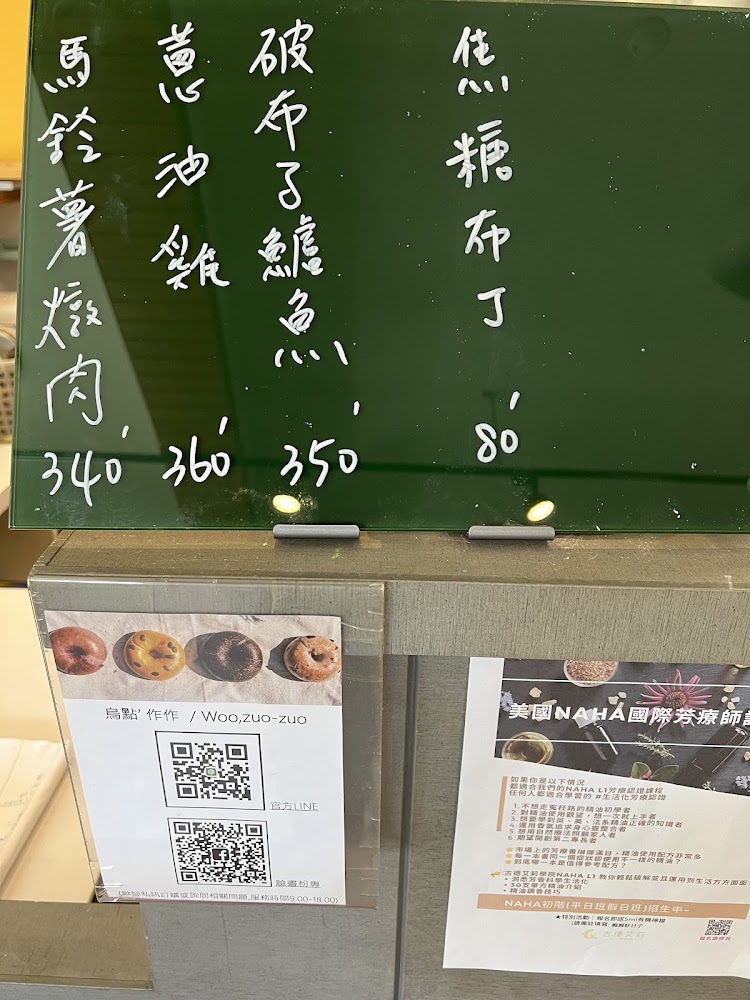 馬鈴薯燉肉 340
蔥油雞 360
破布子鱸魚 350
焦糖布丁 80
烏點'作作 / Woo,zuo-zuo
官方LINE
臉書粉專
(歡迎私訊訂購或詢問相關問題,服務時間9:00-18:00)
美國NAHA國際芳療師
如果你是以下情況
都適合我們的NAHA L1芳療認證課程
任何人都適合學習的 #生活化芳療認證
1. 不想走冤枉路的精油初學者
2. 對精油使用觀望,想一次就上手者
3. 想要學到英、美、法系精油正確的知識者
4. 運用香氣追求身心靈整合者
5. 想用自然療法照顧家人者
6. 期望開創第二專長者
市場上的芳療書琳瑯滿目,精油使用配方非常多
每一本書同一個症狀卻使用不一樣的精油?
到底哪一本是值得參考配方?
古德艾莉學院NAHA L1 教你輕鬆破解並且運用到生活方方面面
• 洞悉芳香科學生活化
• 30支單方精油介紹
• 精油調香技巧
NAHA初階(平日班假日班)招生中~
★特別活動:報名即送5ml有機檸檬
古德艾莉